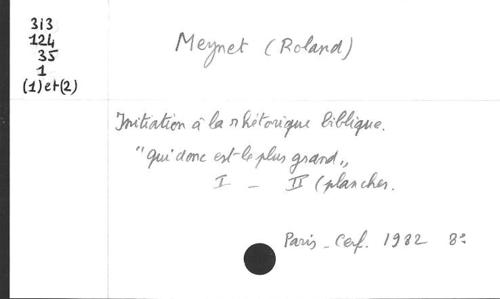 313
124
35
1
(1) et (2)
Meynet (Roland)
Initiation à la rhétorique biblique.
"qui donc est-le plus grand"
I - II (planches.
Paris - Cerf. 1982 8°